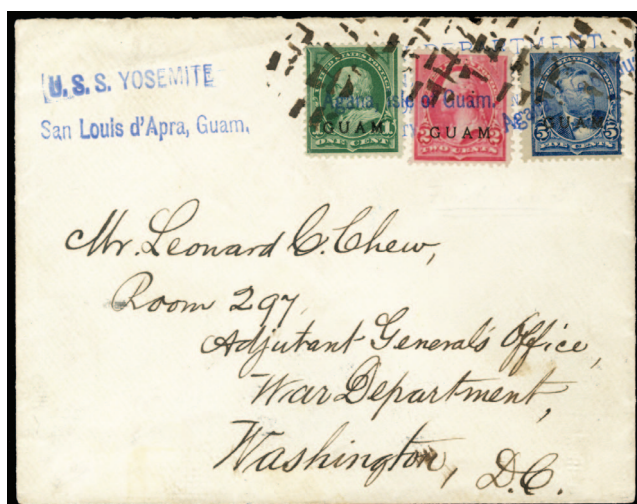 U.S.S. YOSEMITE
San Louis d'Apra, Guam.
DEPARTMENT
Agana, Isle of Guam.
GUAM
ONE CENT
GUAM
TWO CENTS
GUAM
5 5
FIVE CENTS
Mr. Leonard C. Chew,
Room 297,
Adjutant General's Office,
War Department,
Washington, D.C.